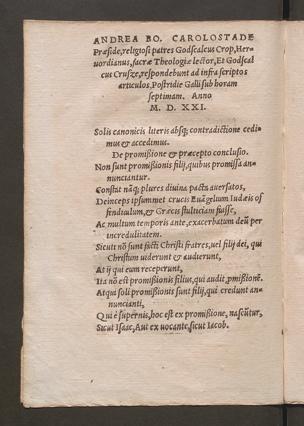 ANDREA BO. CAROLOSTADE
Præside, religiosi patres Godscalcus Crop, Her-
uordianus, sacræ Theologiæ lector, Et Godscal
cus Crusze, respondebunt ad infra scriptos
articulos. Postridie Galli sub horam
septimam. Anno
M. D. XXI.
Solis canonicis literis absq; contradictione cedi-
mus & accedimus.
De promißione & præcepto conclusio.
Non sunt promißionis filij, quibus promissa an-
nunciantur.
Constat nãq; plures diuina pacta auersatos,
Deinceps ipsummet crucis Euãgelum Iudæis of
fendiculum, & Græcis stulticiam fuisse,
Ac multum temporis ante, exacerbatum deũ per
incredulitatem.
Sicut nõ sunt facti Christi fratres, uel filij dei, qui
Christum uiderunt & audierunt,
At ij qui eum receperunt,
Ita nõ est promißionis filius, qui audit, ꝓmißionẽ.
Atqui soli promißionis sunt filij, qui credunt an-
nuncianti,
Qui è supernis, hoc est ex promißione, nascũtur,
Sicut Isaac, Aut ex uocante, sicut Iacob.